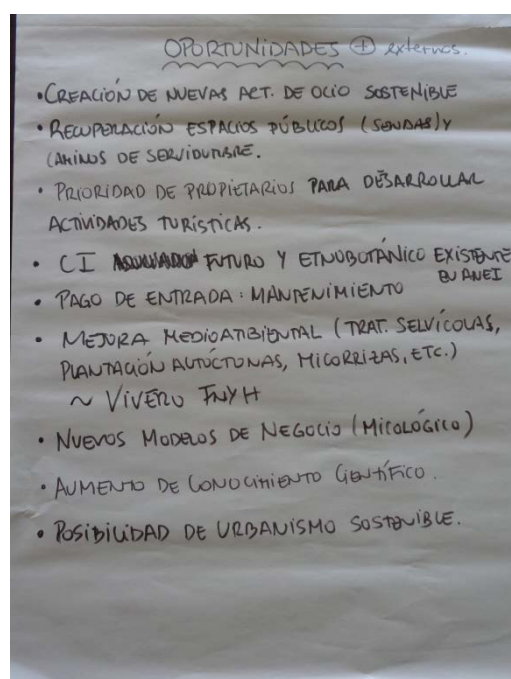 OPORTUNIDADES ⊕ externos.
• CREACIÓN DE NUEVAS ACT. DE OCIO SOSTENIBLE
• RECUPERACIÓN ESPACIOS PÚBLICOS (SENDAS) Y
CAMINOS DE SERVIDUMBRE.
• PRIORIDAD DE PROPIETARIOS PARA DESARROLLAR
ACTIVIDADES TURÍSTICAS.
• CI FUTURO Y ETNOBOTÁNICO EXISTENTE
EN ANEI
• PAGO DE ENTRADA: MANTENIMIENTO
• MEJORA MEDIOAMBIENTAL (TRAT. SELVÍCOLAS,
PLANTACIÓN AUTÓCTONAS, MICORRIZAS, ETC.)
~ VIVERO FNYH
• NUEVOS MODELOS DE NEGOCIO (MICOLÓGICO)
• AUMENTO DE CONOCIMIENTO CIENTÍFICO.
• POSIBILIDAD DE URBANISMO SOSTENIBLE.